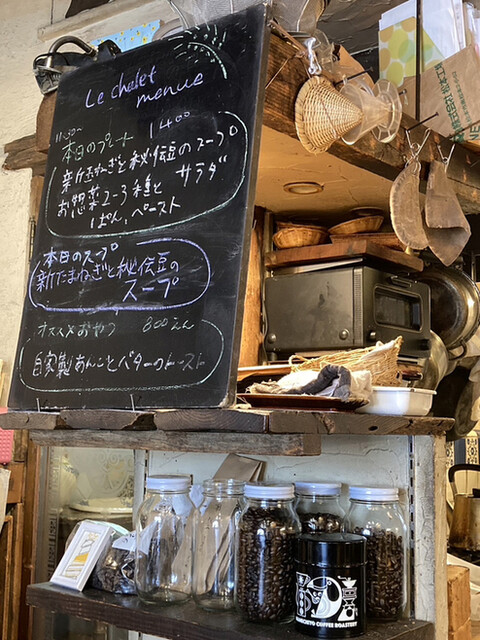 Le chalet
menue
11:30〜
本日のプレート 1400
新たまねぎと秘伝豆のスープ
お惣菜2〜3種と サラダ
ぱん、ペースト
本日のスープ
新たまねぎと秘伝豆の
スープ
オススメおやつ 800えん
自家製あんことバターのトースト
COFFEE ROASTERY